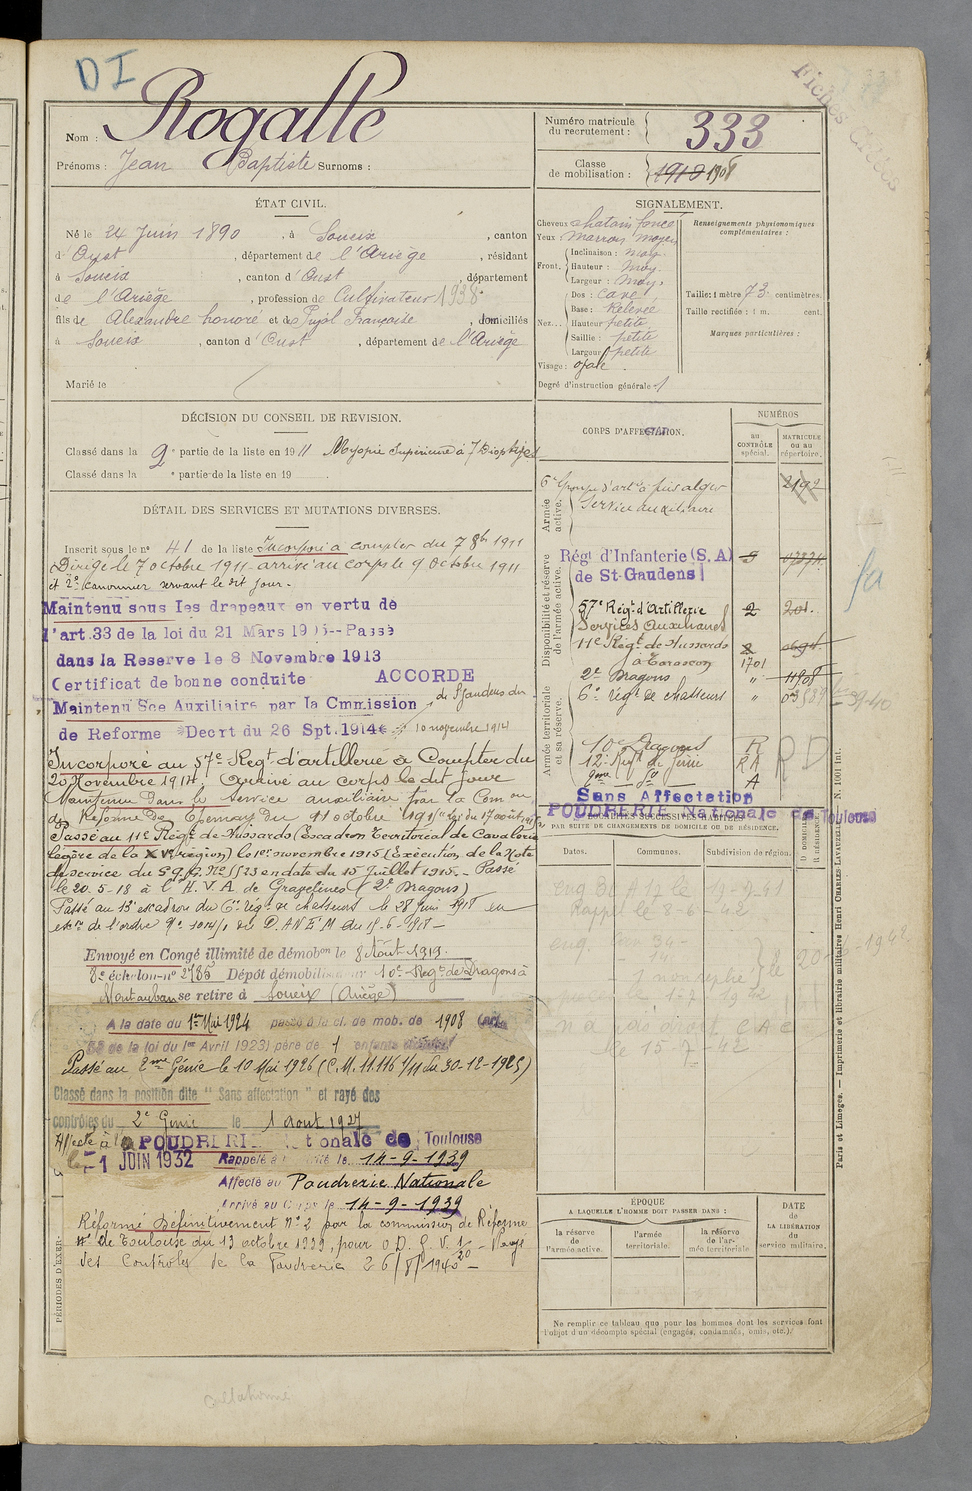 DI
Fiches
Nom : Rogalle
Prénoms : Jean Baptiste Surnoms :
Numéro matricule du recrutement : 333
Classe de mobilisation : 1910 1908
ÉTAT CIVIL.
Né le 24 Juin 1890, à Soueix, canton
d'Oust, département de l'Ariège, résidant
à Soueix, canton d'Oust, département
de l'Ariège, profession de Cultivateur 1938
fils de Alexandre honoré et de Pujol Françoise, domiciliés
à Soueix, canton d'Oust, département de l'Ariège
Marié le
SIGNALEMENT.
Cheveux chatain foncé
Yeux : marron moyen
Front. Inclinaison : moy.
Hauteur : moy.
Largeur : moy.
Nez... Dos : cave
Base : Relevée
Hauteur petite
Saillie : petite
Largeur petite
Visage : ovale
Degré d'instruction générale 1
Renseignements physionomiques complémentaires :
Taille : 1 mètre 73 centimètres.
Taille rectifiée : 1 m. cent.
Marques particulières :
DÉCISION DU CONSEIL DE REVISION.
Classé dans la 2e partie de la liste en 1911 Myopie Supérieure à 7 Dioptries
Classé dans la e partie de la liste en 19
DÉTAIL DES SERVICES ET MUTATIONS DIVERSES.
Inscrit sous le n° 41 de la liste Incorporé à compter du 7 8bre 1911
Dirigé le 7 octobre 1911 arrivé au corps le 9 Octobre 1911
et 2e canonnier servant le dit jour.
Maintenu sous les drapeaux en vertu de
l'art.33 de la loi du 21 Mars 1905--Passé
dans la Reserve le 8 Novembre 1913
Certificat de bonne conduite ACCORDE
Maintenu Sce Auxiliaire par la Cmmission de St Gaudens du
de Reforme Décrt du 26 Spt.1914 10 novembre 1914
Incorporé au 57e Regt d'artillerie à Compter du
20 Novembre 1914. Arrivé au corps le dit jour
Maintenu dans le service auxiliaire par la Com on
de Réforme de Epernay du 11 octobre 1915
Passé au 11e Régt de Hussards (Escadron Territorial de Cavalerie
légère de la XVe région) le 1er novembre 1915 (Exécution de la Note
de service du G.Q.G. en date du 15 Juillet 1915 - Passé
le 20-5-18 à l'H.V.A de Gravelines (2e Dragons)
Passé au 15e escadron du 6e Régt de chasseurs le 28 juin 1918 en
exon de l'ordre du 15-6-1918 -
Envoyé en Congé illimité de démobon le 8 Août 1919.
8e échelon n° 2786 Dépôt démobilisateur 10e Regt de Dragons à
Montauban se retire à Soueix (Ariège)
A la date du 1er Mai 1924 passé à la cl. de mob. de 1908 (art.
58 de la loi du 1er Avril 1923) père de 1 enfants
Passé au 2me Génie le 10 Mai 1926 (C.M. 11.116 1/11 du 30-12-1925)
Classé dans la position dite " Sans affectation " et rayé des
contrôles du 2e Génie le 1 Aout 1927
Affecté à la POUDRERIE Nationale de Toulouse
le -1 JUIN 1932 Rappelé à l'activité le 14-9-1939
Affecté au Poudrerie Nationale
Arrivé au Corps le 14-9-1939
Réformé Définitivement n° 2 par la commission de Réforme
de Toulouse du 13 octobre 1939, pour O.D.G.V. 1/20 - Rayé
des Contrôles de la Poudrerie 26/8/1940 -
PÉRIODES D'EXER
CORPS D'AFFECTATION.
NUMÉROS
au CONTRÔLE spécial.
MATRICULE ou au répertoire.
Armée active.
6e Groupe d'artie à pied alger 2192
Service auxiliaire
Disponibilité et réserve de l'armée active.
Régt d'Infanterie (S.A)
de St-Gaudens
57e Régt d'Artillerie 2 201.
Services Auxiliaires
11e Régt de Hussards
à Tarascon 1701
2e Dragons " 11908
6e régt de chasseurs "
39-40
Armée territoriale et sa réserve.
10e Dragons R
12e Regt de Génie RA
2me do A
RD
Sans Affectation
POUDRERIE Nationale de Toulouse
LOCALITÉS SUCCESSIVES HABITÉES
PAR SUITE DE CHANGEMENTS DE DOMICILE OU DE RÉSIDENCE.
Dates. Communes. Subdivision de région. D. DOMICILE R. RÉSIDENCE
Rappel le 8-6-42
n'a pas droit C A C
le 15-7-42
ÉPOQUE
A LAQUELLE L'HOMME DOIT PASSER DANS :
la réserve de l'armée active. l'armée territoriale. la réserve de l'armée territoriale
DATE de LA LIBÉRATION du service militaire.
Ne remplir ce tableau que pour les hommes dont les services font l'objet d'un décompte spécial (engagés, condamnés, omis, etc.).
Paris et Limoges. — Imprimerie et librairie militaires Henri CHARLES-LAVAUZELLE. N. 1001 Int.